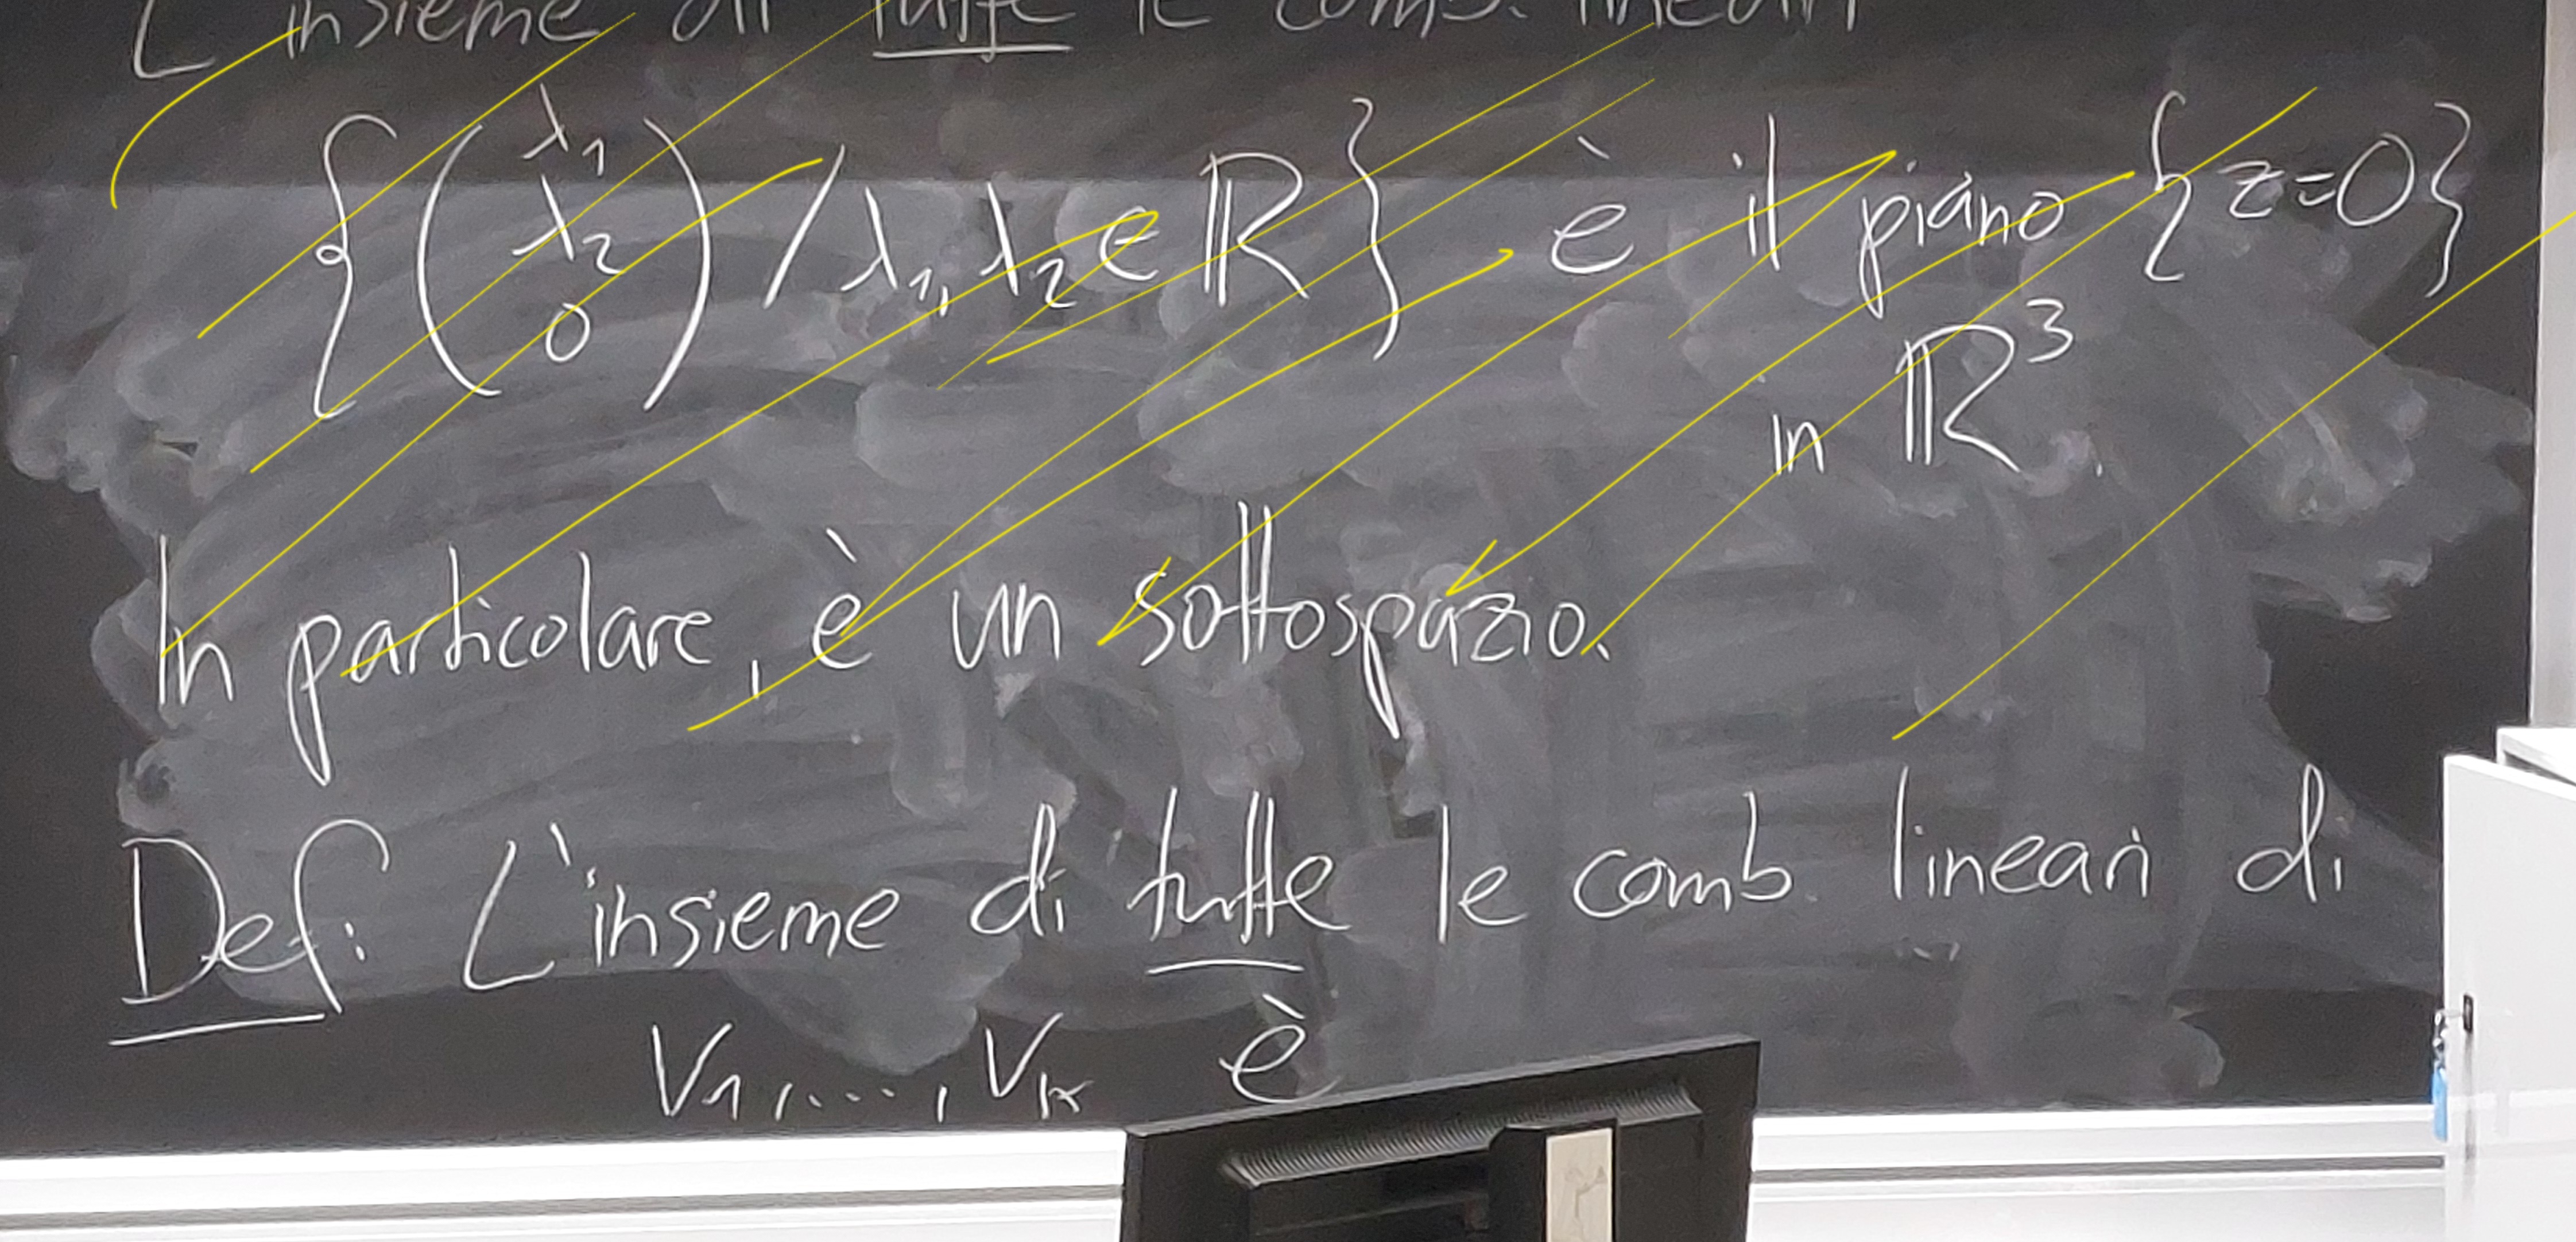 L'insieme di tutte le comb. lineari
{(λ1 λ2 0) / λ1, λ2 ∈ ℝ} è il piano {z=0}
in ℝ³.
In particolare, è un sottospazio.
Def: L'insieme di tutte le comb. lineari di
v1, ..., vk è